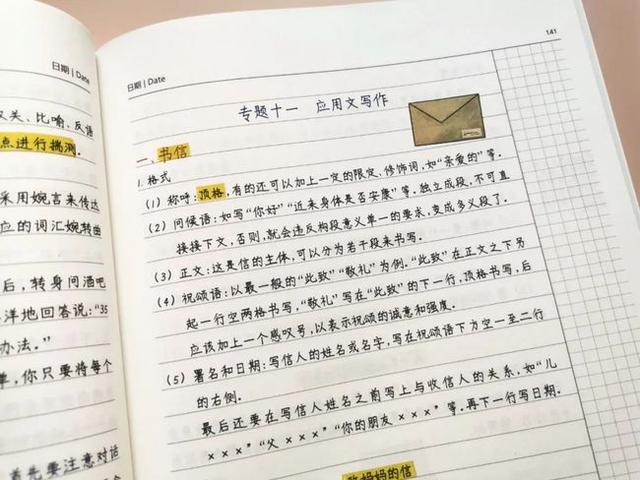 日期 | Date
义关、比喻、反语
点进行揣测.
采用婉言来传达
应的词汇婉转曲
后，转身问酒吧
洋地回答说：“35
办法.”
单，你只要将每个
首先要注意对话
141
日期 | Date
专题十一 应用文写作
一、书信
1. 格式
(1) 称呼：顶格，有的还可以加上一定的限定、修饰词，如“亲爱的”等.
(2) 问候语：如写“你好”“近来身体是否安康”等. 独立成段，不可直
接接下文，否则，就会违反构段意义单一的要求，变成多义段了.
(3) 正文：这是信的主体，可以分为若干段来书写.
(4) 祝颂语：以最一般的“此致”“敬礼”为例. “此致”在正文之下另
起一行空两格书写，“敬礼”写在“此致”的下一行，顶格书写，后
应该加上一个感叹号，以表示祝颂的诚意和强度.
(5) 署名和日期：写信人的姓名或名字，写在祝颂语下方空一至二行
的右侧.
最后还要在写信人姓名之前写上与收信人的关系，如“儿
×××”“父×××”“你的朋友×××”等. 再下一行写日期.
妈妈的信